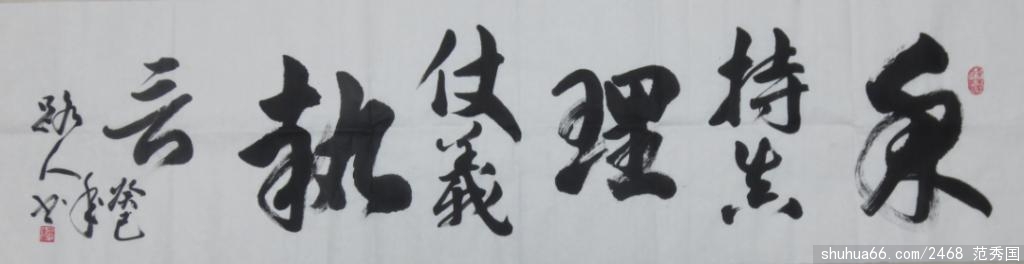 秉
持真
理
仗義
執
言
癸巳年
路人书
shuhua66.com/2468 范秀国